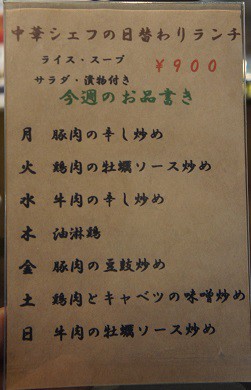 中華シェフの日替わりランチ
ライス・スープ
サラダ・漬物付き
￥９００
今週のお品書き
月 豚肉の辛し炒め
火 鶏肉の牡蠣ソース炒め
水 牛肉の辛し炒め
木 油淋鶏
金 豚肉の豆豉炒め
土 鶏肉とキャベツの味噌炒め
日 牛肉の牡蠣ソース炒め